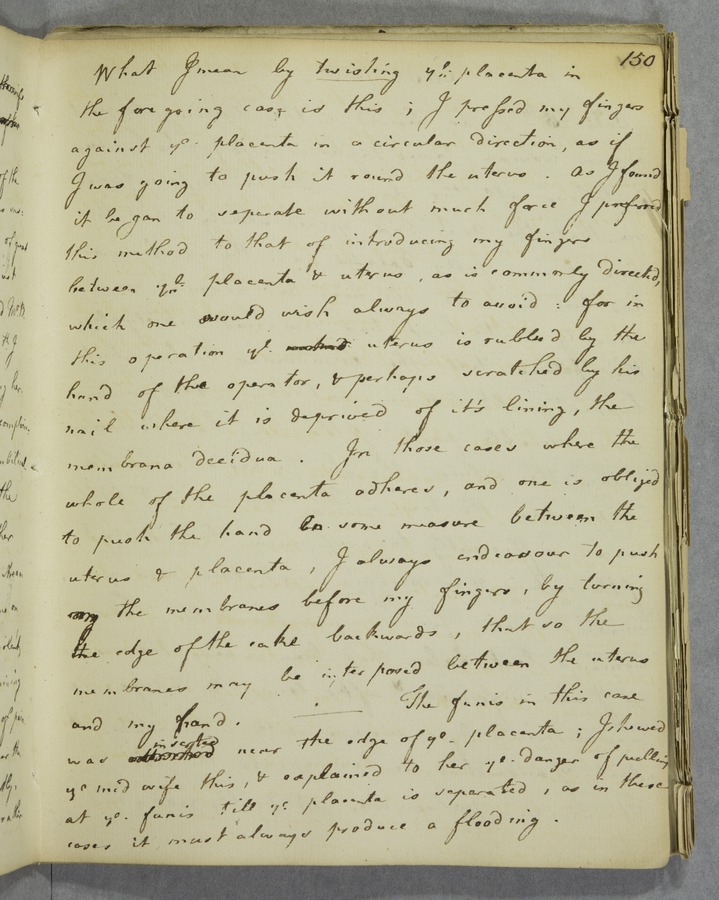 150
What I mean by twisting ye. placenta in
the fore going case is this ; I pressed my fingers
against ye. placenta in a circular direction, as if
I was going to push it round the uterus . As I found
it began to separate without much force I preferred
this method to that of introducing my fingers
between ye. placenta & uterus , as is commonly directed,
which one would wish always to avoid : for in
this operation ye. uterus is rubbed by the
hand of the operator, & perhaps scratched by his
nail where it is deprived of it's lining, the
membrana decidua . In those cases where the
whole of the placenta adheres, and one is obliged
to push the hand in some measure between the
uterus & placenta , I always endeavour to push
the membranes before my fingers , by turning
the edge of the cake backwards , that so the
membranes may be interposed between the uterus
and my hand . — The funis in this case
was inserted near the edge of ye. placenta ; I shewed
ye mid wife this, & explained to her ye. danger of pulling
at ye. funis till ye placenta is separated , as in these
cases it must always produce a flooding .